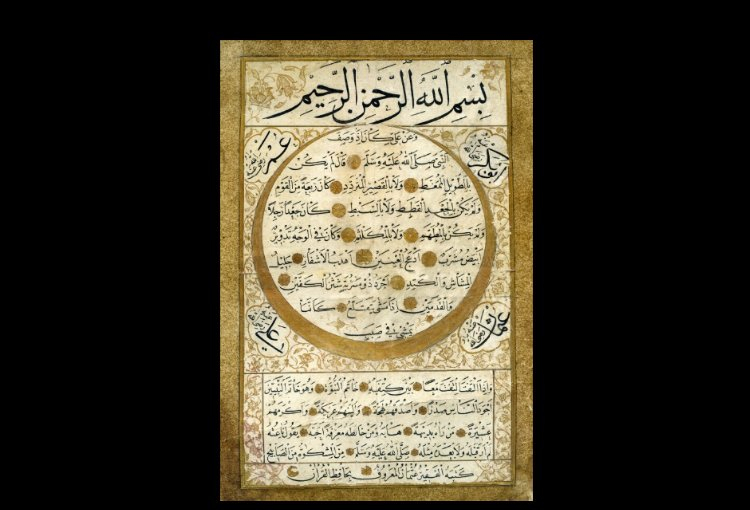 بِسْمِ اللّٰهِ الرَّحْمٰنِ الرَّحِيمِ
ابوبكر
عمر
وعن علي كان اذا وصف
النبي صلى الله عليه وسلم قال لم يكن
بالطويل الممغط ولا بالقصير المتردد كان ربعة من القوم
ولم يكن بالجعد القطط ولا بالسبط كان جعدا رجلا
ولم يكن بالمطهم ولا بالمكلثم وكان في الوجه تدوير
ابيض مشرب ادعج العينين اهدب الاشفار جليل
المشاش والكتد اجرد ذو مسربة شثن الكفين
والقدمين اذا مشى يتقلع كانما
يمشي في صبب
عثمان
علي
واذا التفت التفت معا بين كتفيه خاتم النبوة وهو خاتم النبيين
اجود الناس صدرا واصدقهم لهجة والينهم عريكة واكرمهم
عشيرة من رآه بديهة هابه ومن خالطه معرفة احبه يقول ناعته
لم ار قبله ولا بعده مثله صلى الله عليه وسلم من المشكوة من المصابيح
كتبه الفقير عثمان المعروف بحافظ القرآن